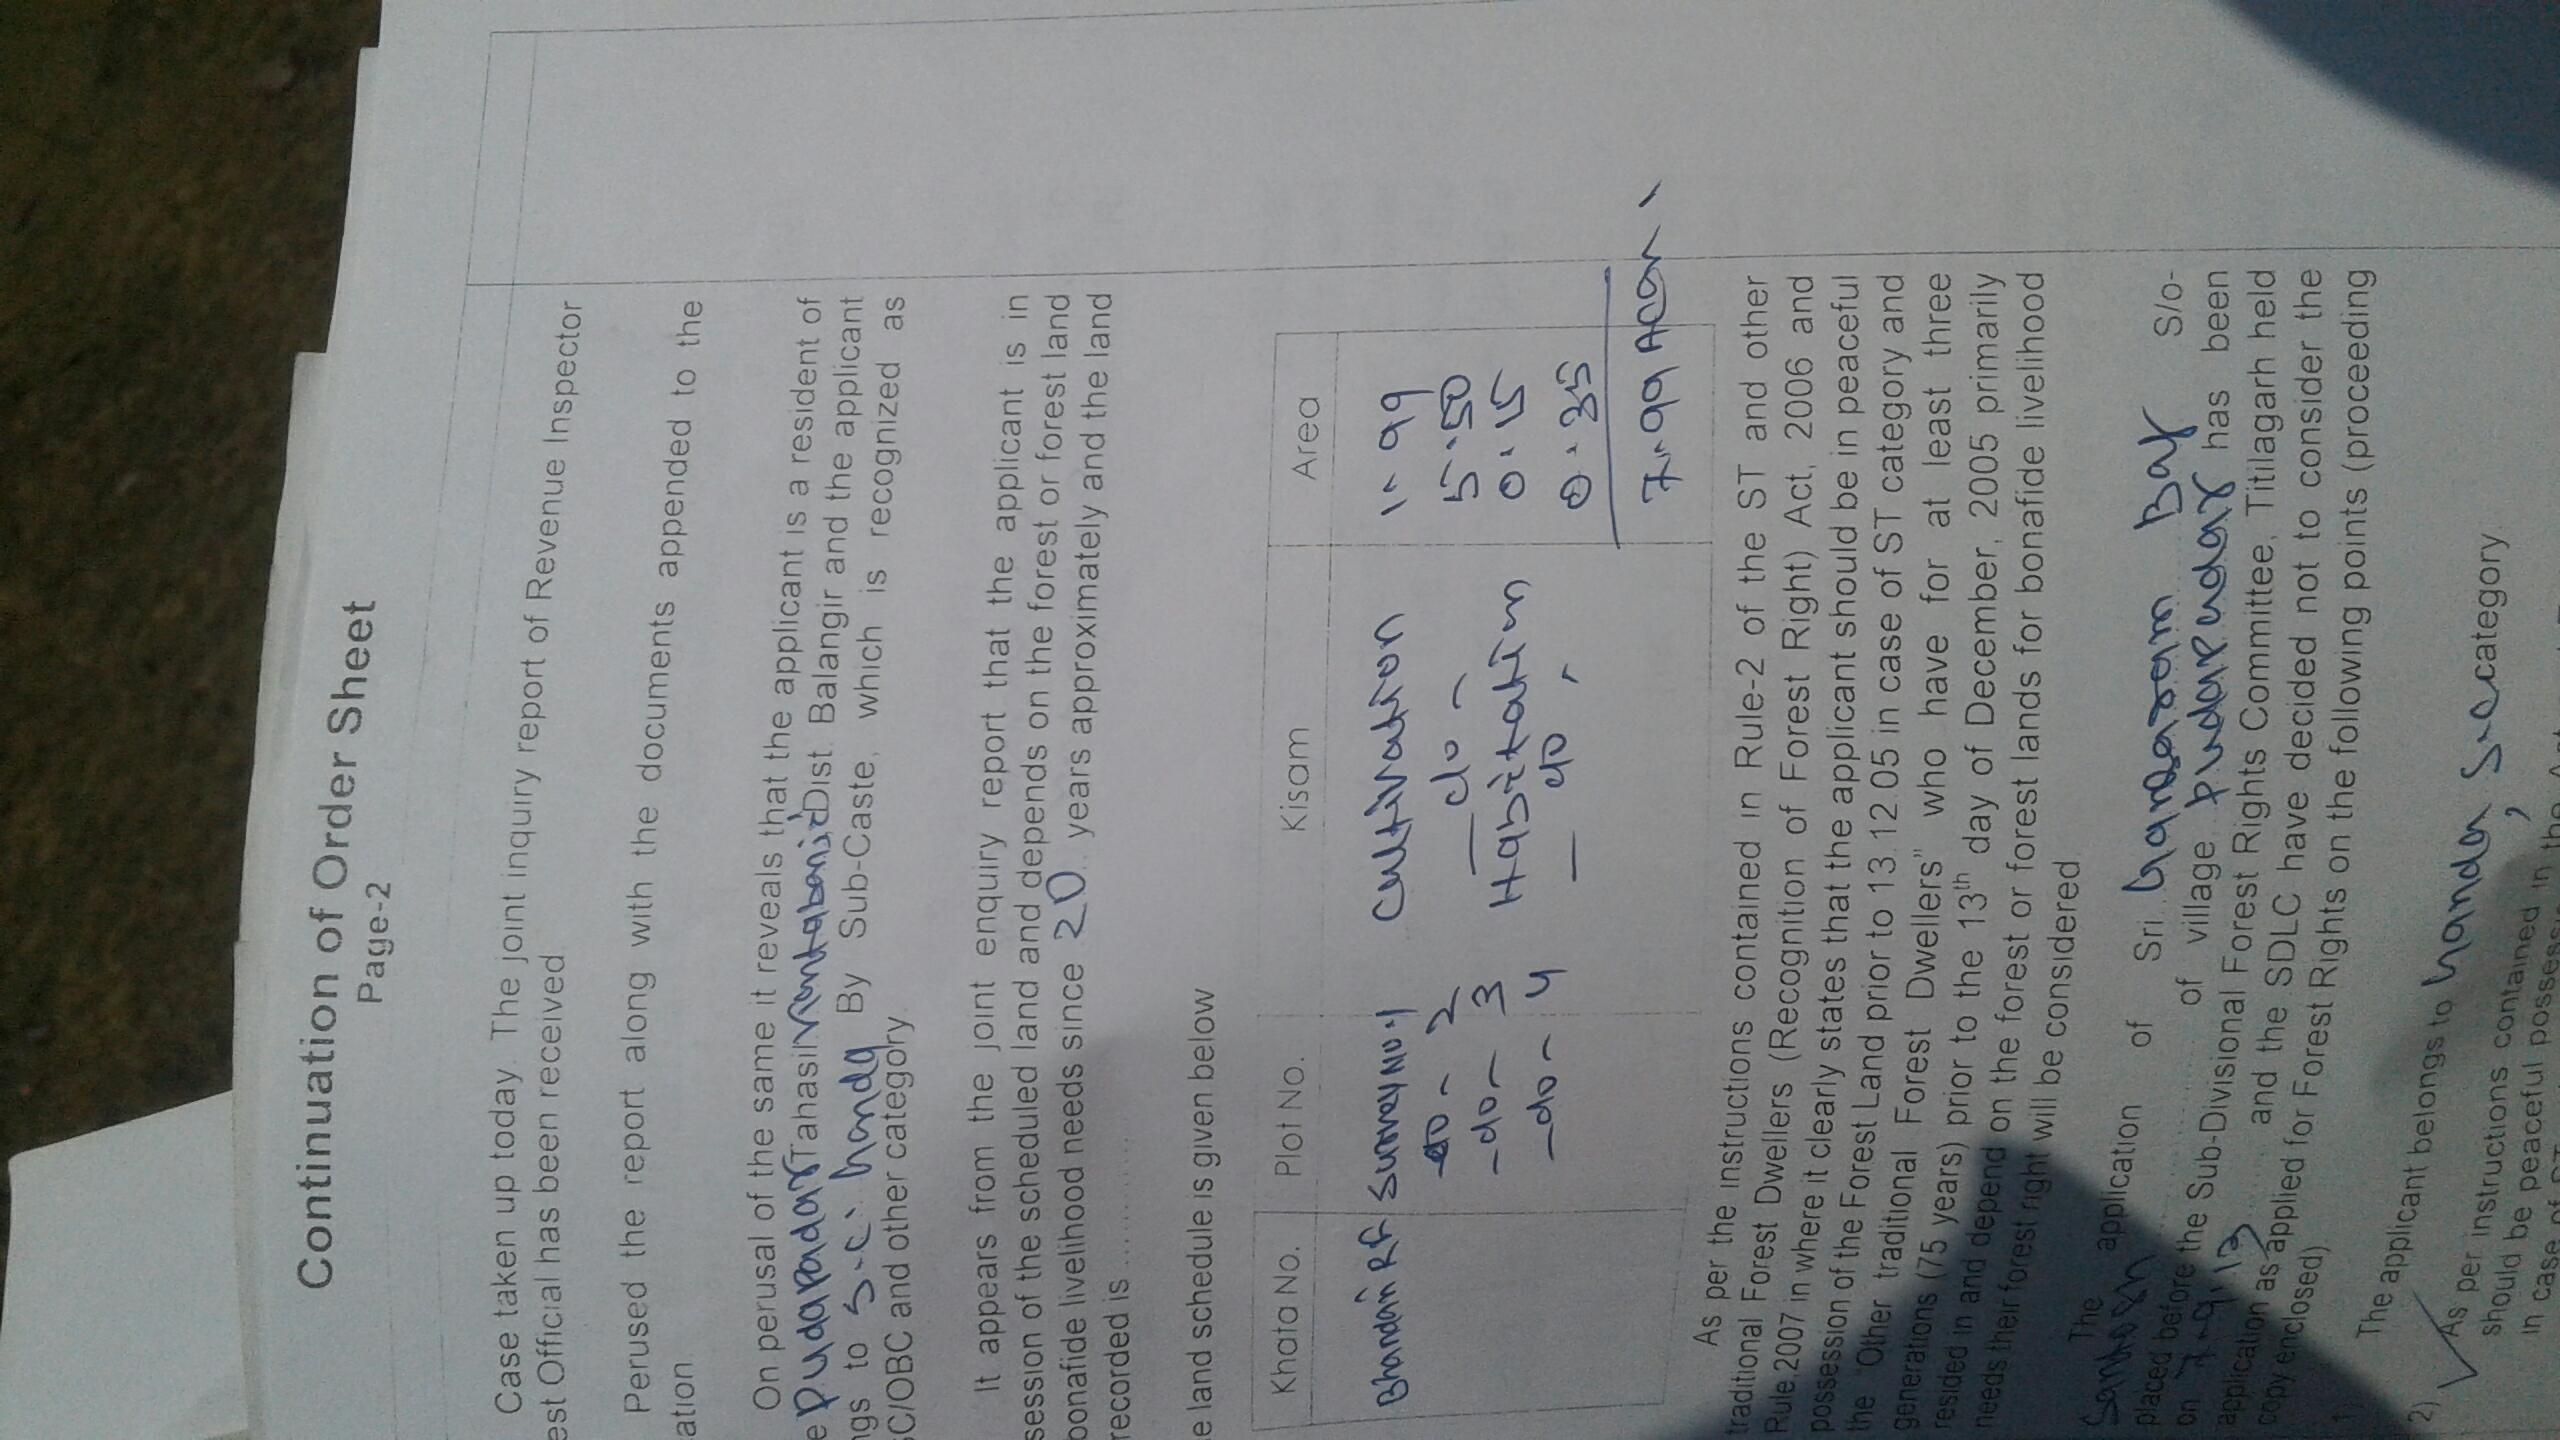 Continuation of Order Sheet
Page-2
Case taken up today. The joint inquiry report of Revenue Inspector
est Official has been received
Perused the report along with the documents appended to the
ation.
On perusal of the same it reveals that the applicant is a resident of
e Pudapadar Tahasil Dist. Balangir and the applicant
ngs to S.C. By Sub-Caste, which is recognized as
SC/OBC and other category.
It appears from the joint enquiry report that the applicant is in
session of the scheduled land and depends on the forest or forest land
bonafide livelihood needs since 20 years approximately and the land
recorded is ............
e land schedule is given below
Khata No. Plot No. Kisam Area
Bhandan RF Survey No.1 Cultivation 1.99
-do- 2 -do- 5.50
-do- 3 Habitation 0.15
-do- 4 -do- 0.35
7.99
As per the instructions contained in Rule-2 of the ST and other
traditional Forest Dwellers (Recognition of Forest Right) Act, 2006 and
Rule.2007 in where it clearly states that the applicant should be in peaceful
possession of the Forest Land prior to 13.12.05 in case of ST category and
the "Other traditional Forest Dwellers" who have for at least three
generations (75 years) prior to the 13th day of December, 2005 primarily
resided in and depend on the forest or forest lands for bonafide livelihood
needs their forest right will be considered
The application of Sri S/o-
of village Pudapadar has been
placed before the Sub-Divisional Forest Rights Committee, Titilagarh held
on 7.9.13 and the SDLC have decided not to consider the
application as applied for Forest Rights on the following points (proceeding
copy enclosed)
1) The applicant belongs to category.
2) As per instructions contained in the
should be peaceful
in case of